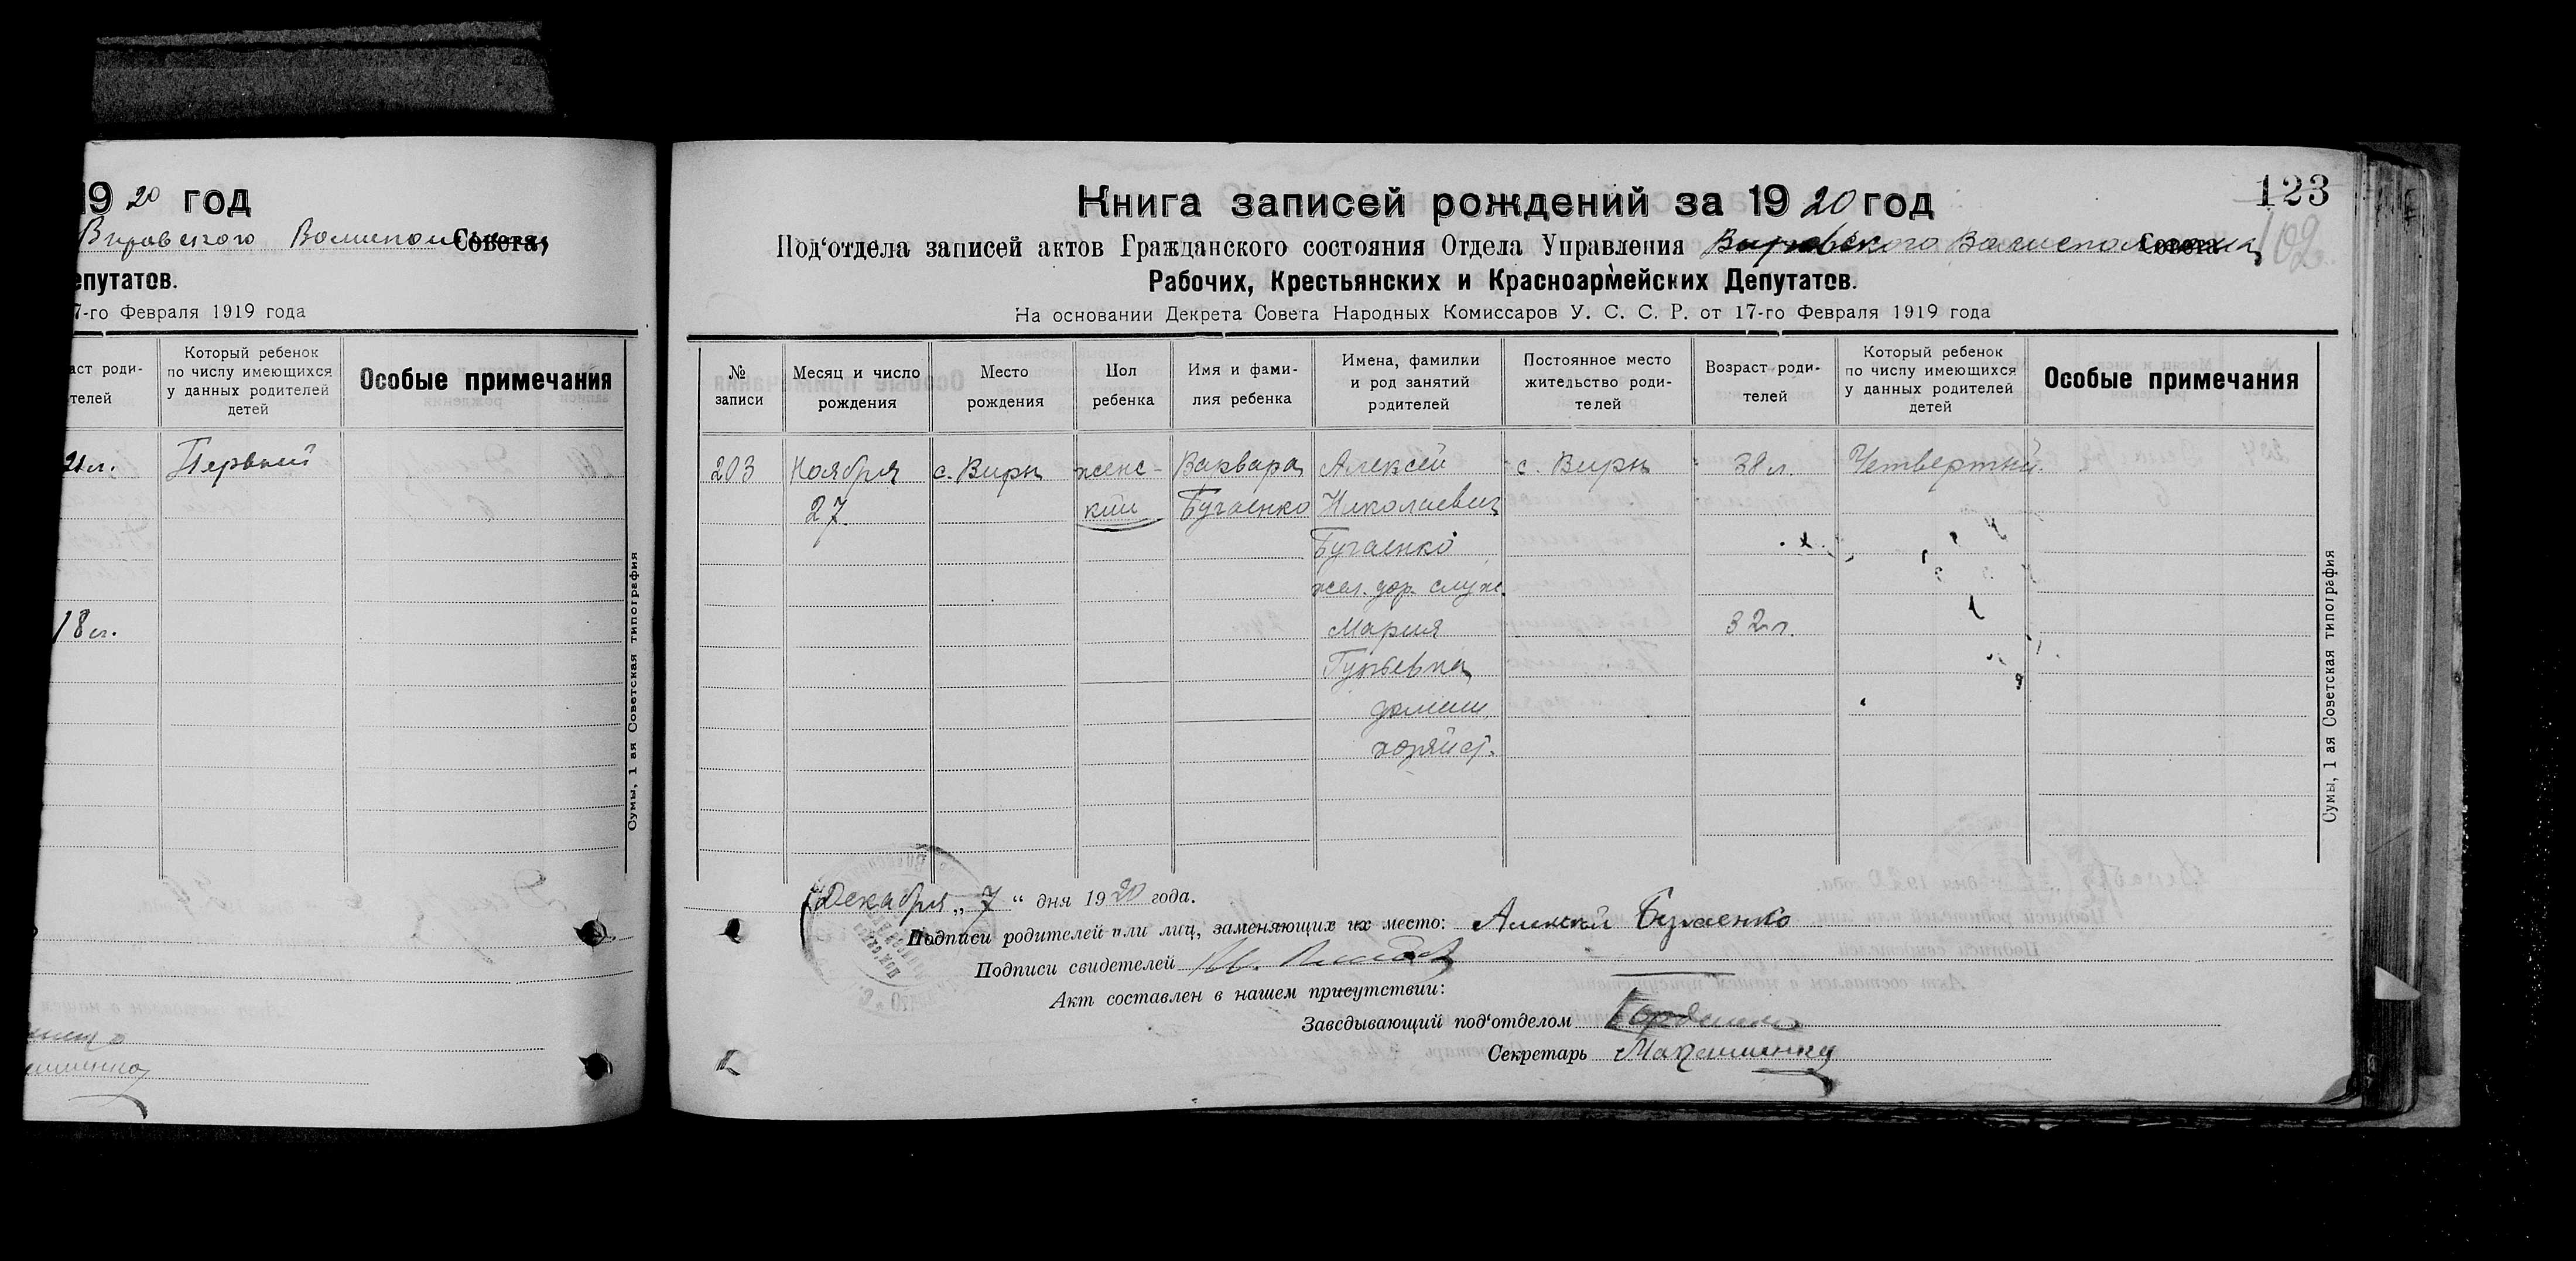 19 20 год
Вировского Волисполкома Совета
епутатов.
7-го Февраля 1919 года
аст роди-
телей
Который ребенок
по числу имеющихся
у данных родителей
детей
Особые примечания
21 л. Первый
18 л.
Сумы, 1 ая Советская типография
123
109
Книга записей рождений за 19 20 год
Под‘отдела записей актов Гражданского состояния Отдела Управления Вировского Волисполкома Совета
Рабочих, Крестьянских и Красноармейских Депутатов.
На основании Декрета Совета Народных Комиссаров У. С. С. Р. от 17-го Февраля 1919 года
№
записи
Месяц и число
рождения
Место
рождения
Пол
ребенка
Имя и фами-
лия ребенка
Имена, фамилии
и род занятий
родителей
Постоянное место
жительство роди-
телей
Возраст роди-
телей
Который ребенок
по числу имеющихся
у данных родителей
детей
Особые примечания
203 Ноября с. Виры женс- Варвара Алексей с. Виры 38 л. Четвертый
27. кий Бугаенко Николаевич
Бугаенко
жел. дор. служ.
Мария 32 г.
Гурьевна
домаш.
хозяйст.
Сумы, 1 ая Советская типография
Декабря „ 7 “ дня 19 20 года.
Подписи родителей или лиц, заменяющих их место: Алексей Бугаенко
Подписи свидетелей
Акт составлен в нашем присутствии:
Заведывающий под‘отделом
Секретарь